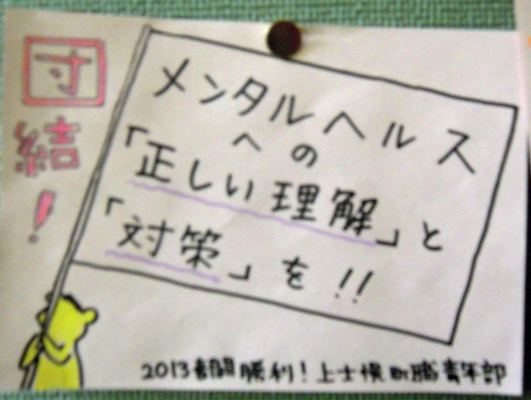 団結!
メンタルヘルス
への
「正しい理解」と
「対策」を!!
2013春闘勝利!上士幌町職青年部